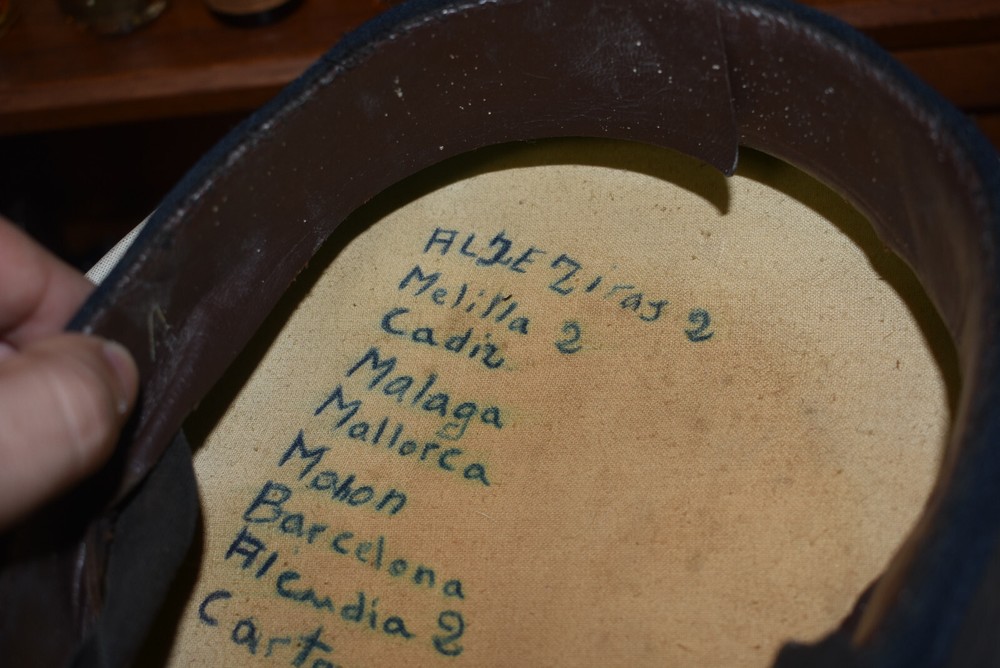 ALJEZiras 2
Melilla 2
Cadiz
Malaga
Mallorca
Mahon
Barcelona
Alcudia 2
Carta